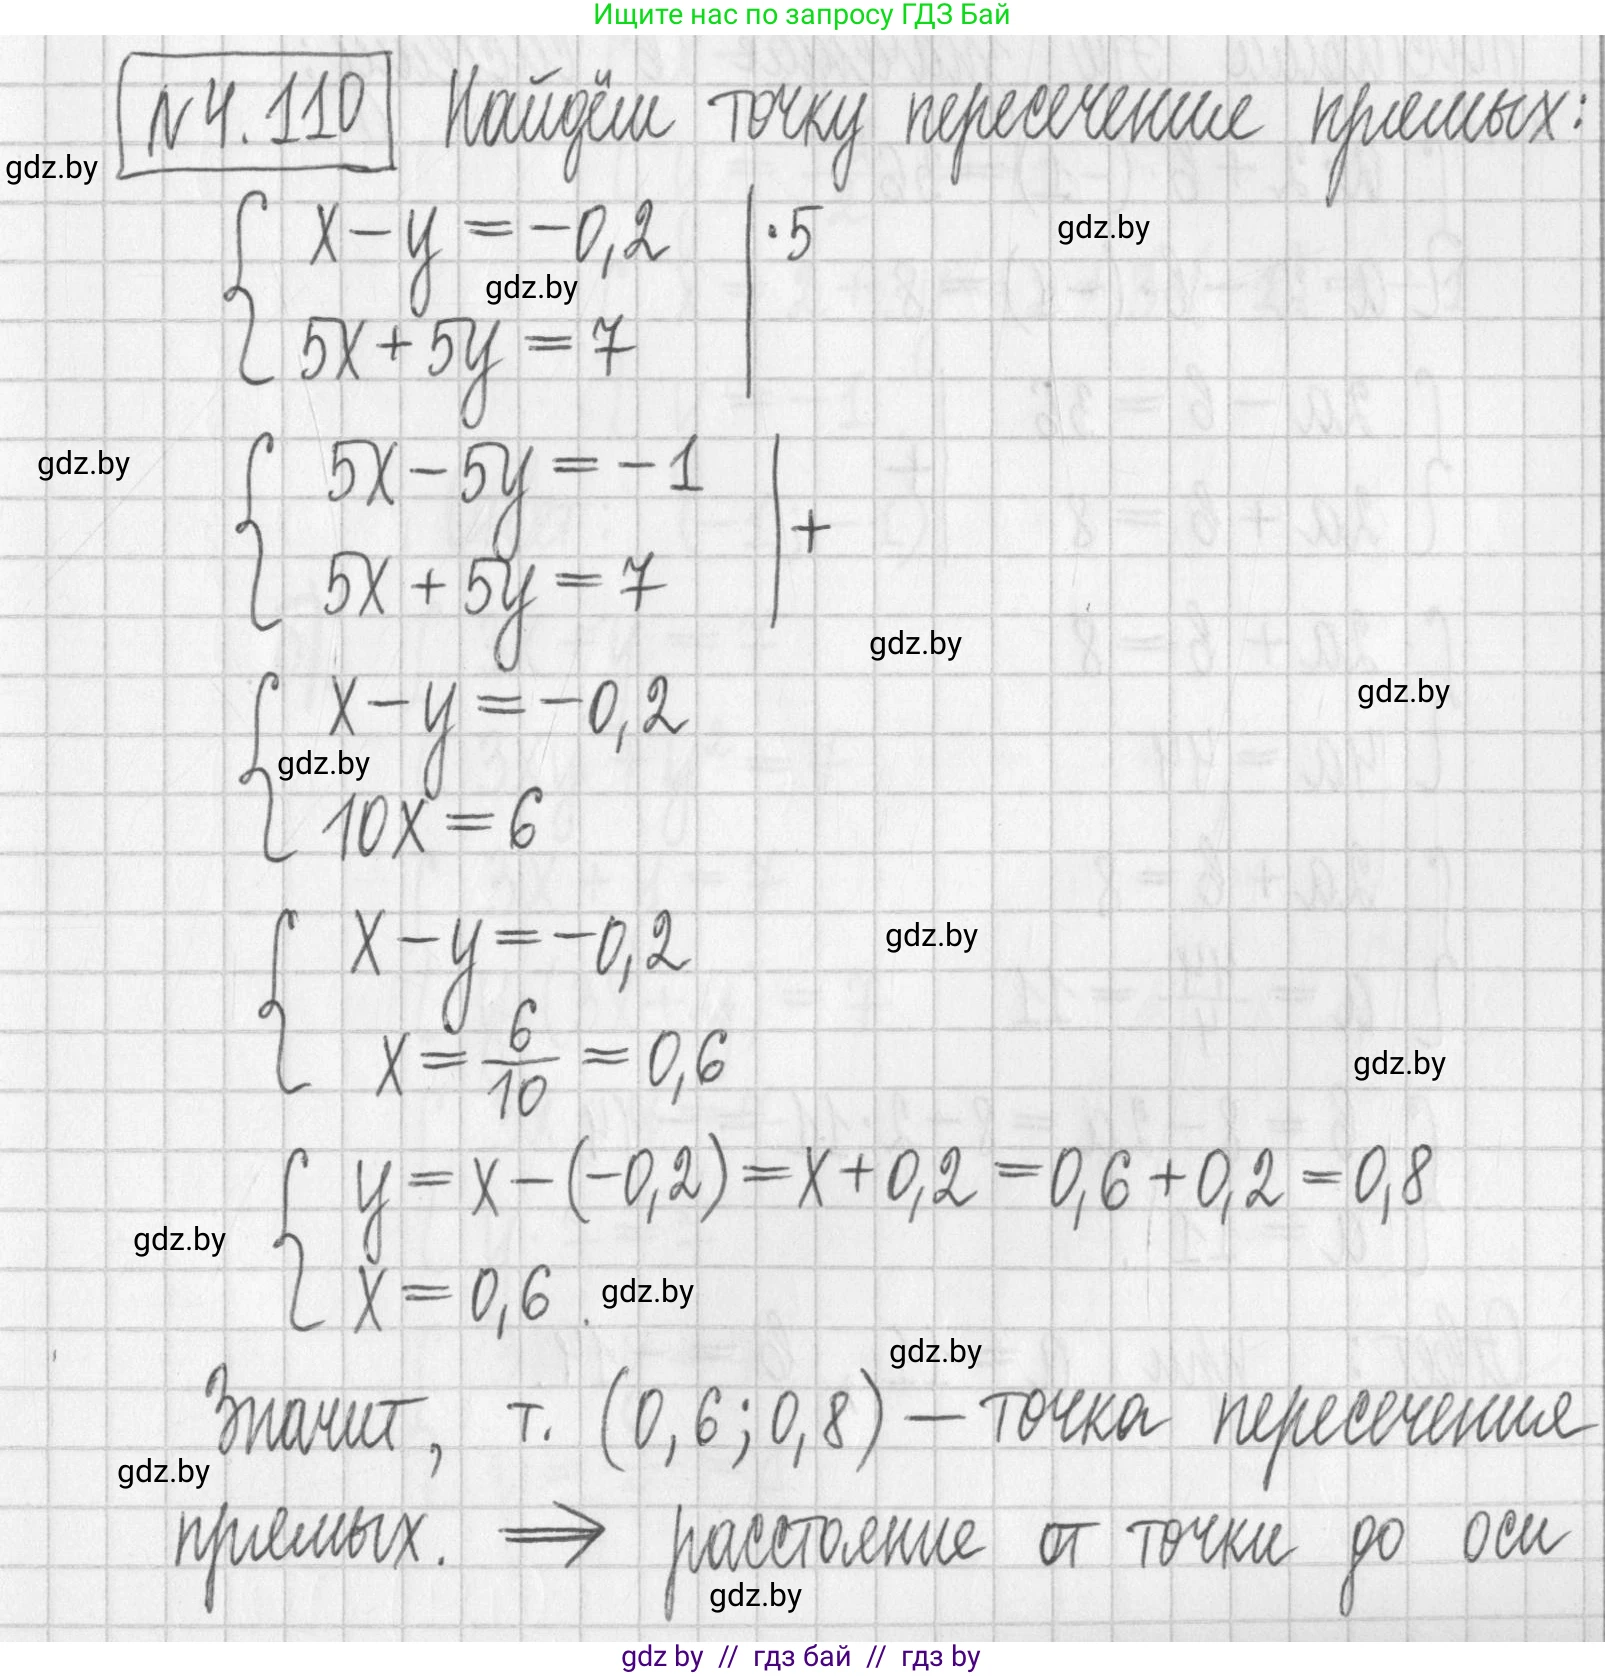 Ищите нас по запросу ГДЗ Бай
N 4.110 Найдём точку пересечение прямых:
gdz.by
x - y = -0,2 | ·5
gdz.by
gdz.by
5x + 5y = 7
gdz.by
5x - 5y = -1 | +
5x + 5y = 7
gdz.by
x - y = -0,2
gdz.by
gdz.by
10x = 6
x - y = -0,2
gdz.by
x = 6/10 = 0,6
gdz.by
y = x - (-0,2) = x + 0,2 = 0,6 + 0,2 = 0,8
gdz.by
x = 0,6.
gdz.by
gdz.by
Значит, т. (0,6; 0,8) — точка пересечения
gdz.by
прямых. ⟹ расстояние от точки до оси
gdz.by
gdz by // гдз бай // гдз by